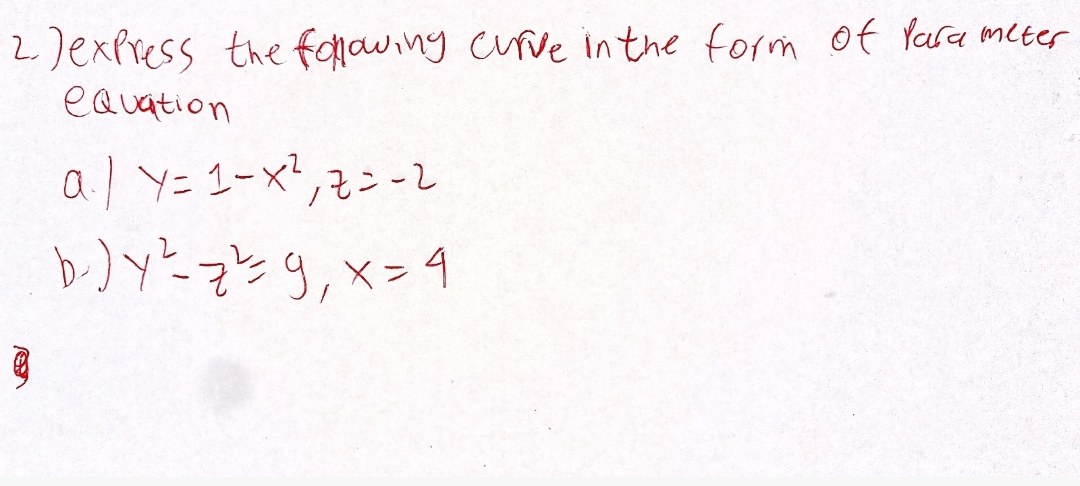 2.) express the following curve in the form of Parameter
equation
a.) y = 1-x², z = -2
b.) y²-z² = 9, x = 4